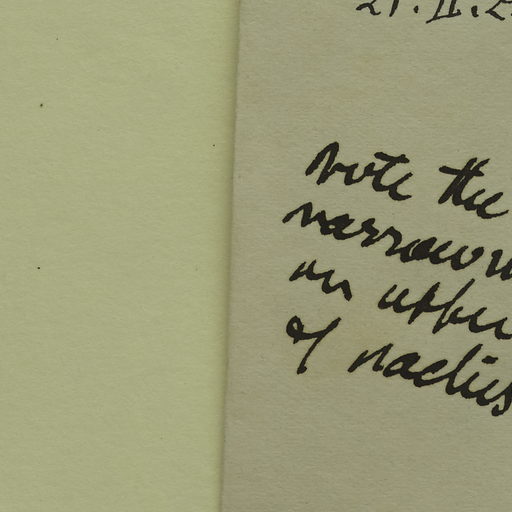 21.II.2
Note the
narrown
on upper
of radius